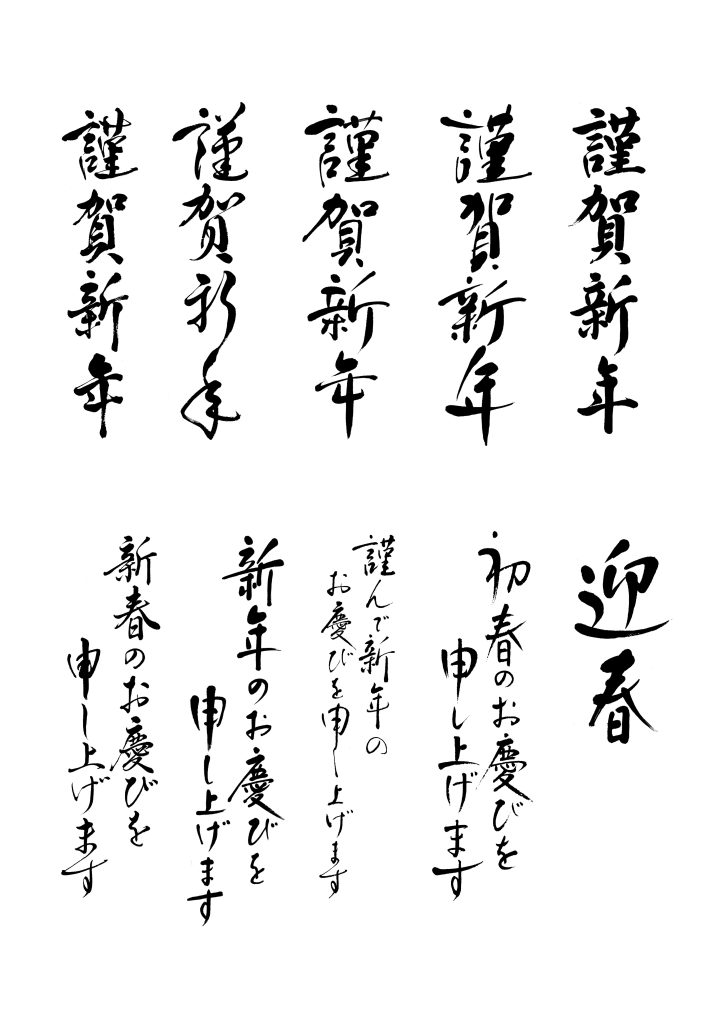 謹賀新年
謹賀新年
謹賀新年
謹賀新年
謹賀新年
迎春
初春のお慶びを
申し上げます
謹んで新年の
お慶びを申し上げます
新年のお慶びを
申し上げます
新春のお慶びを
申し上げます